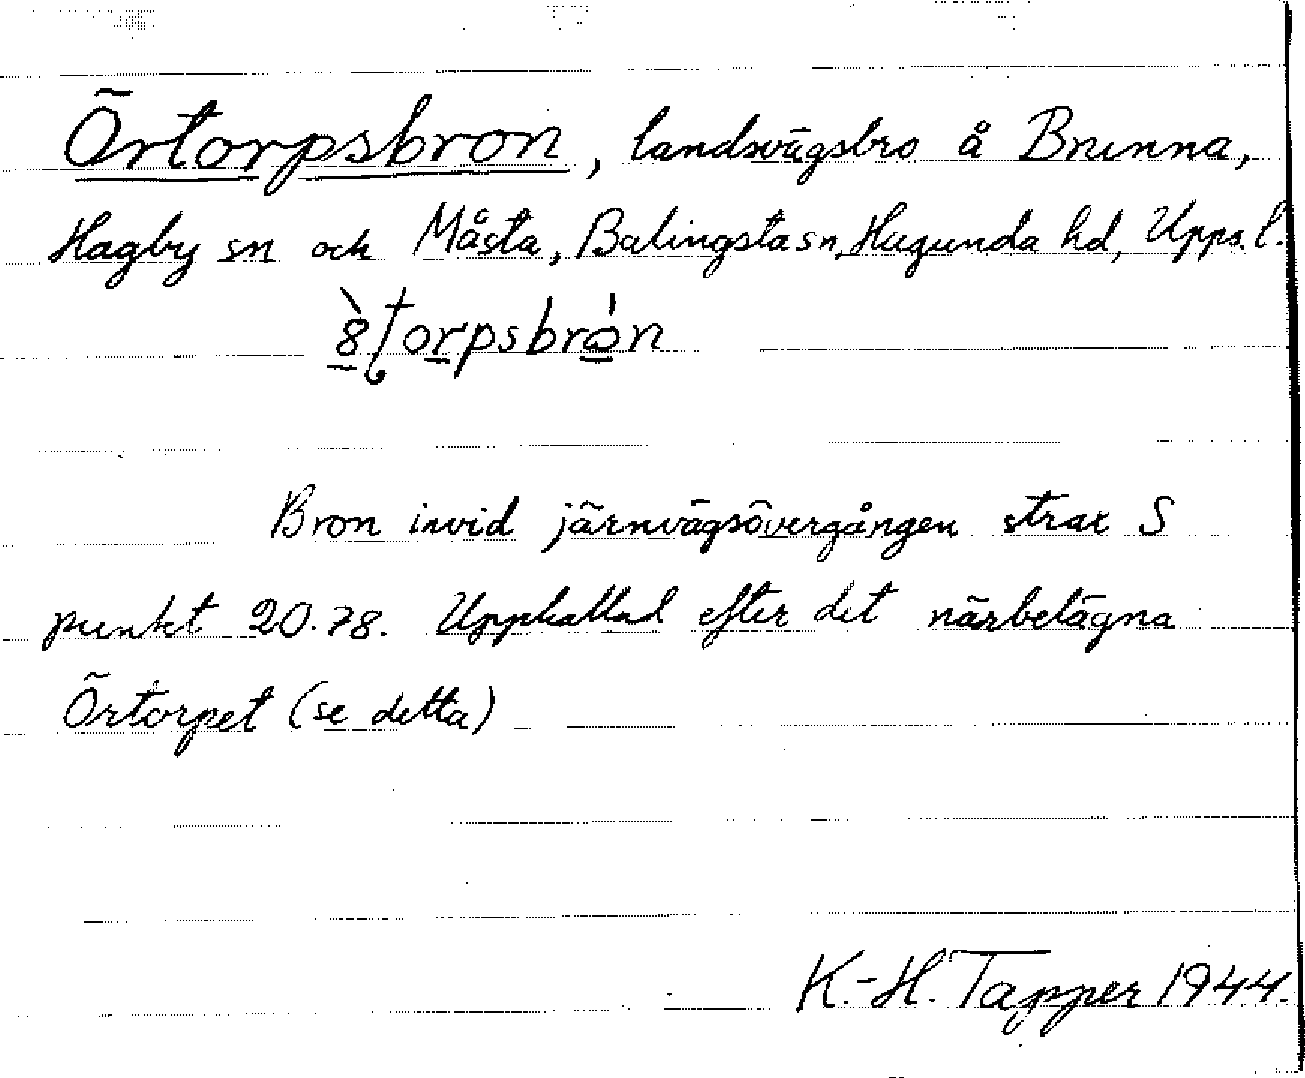 Örtorpsbron, landsvägsbro å Brunna,
Hagby sn och Måsta, Balingsta sn, Hagunda hd, Upps. l.
Bron invid järnvägsövergången strax S
punkt 20.78. Uppkallad efter det närbelägna
Örtorpet (se detta)
K.-H. Tapper 1944.